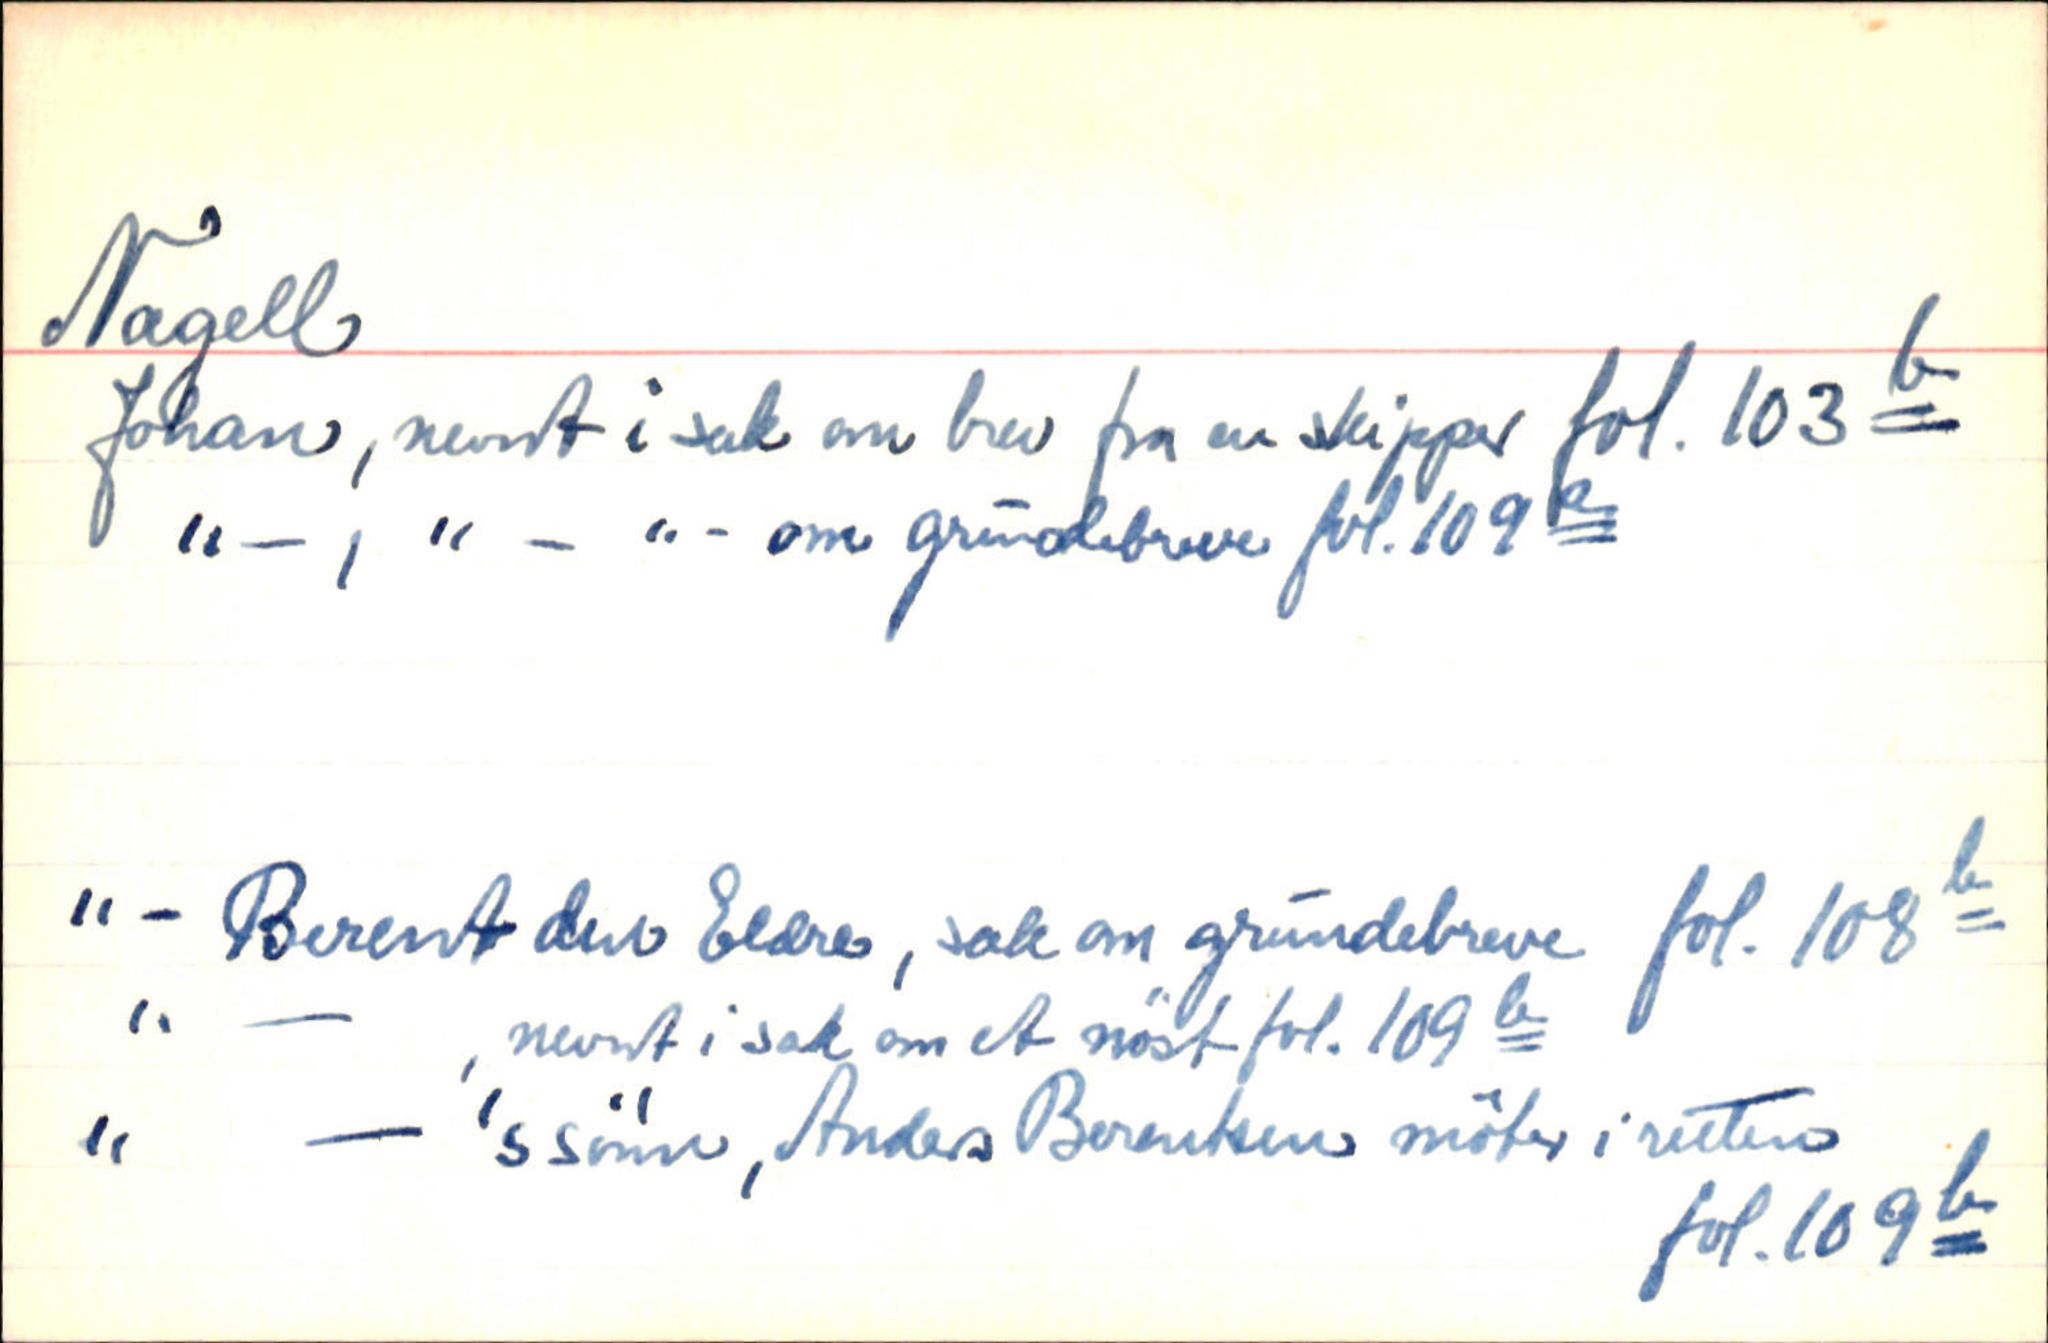 Nagell
Johan, nevnt i sak om brev fra en skipper fol. 103 b
"-, " - "- om grundebreve fol. 109 a
"- Berent den Eldre, sak om grundebreve fol. 108 b
" — , nevnt i sak om et nöst fol. 109 b
" — 's sönn, Anders Berentsen möter i retten
fol. 109 b